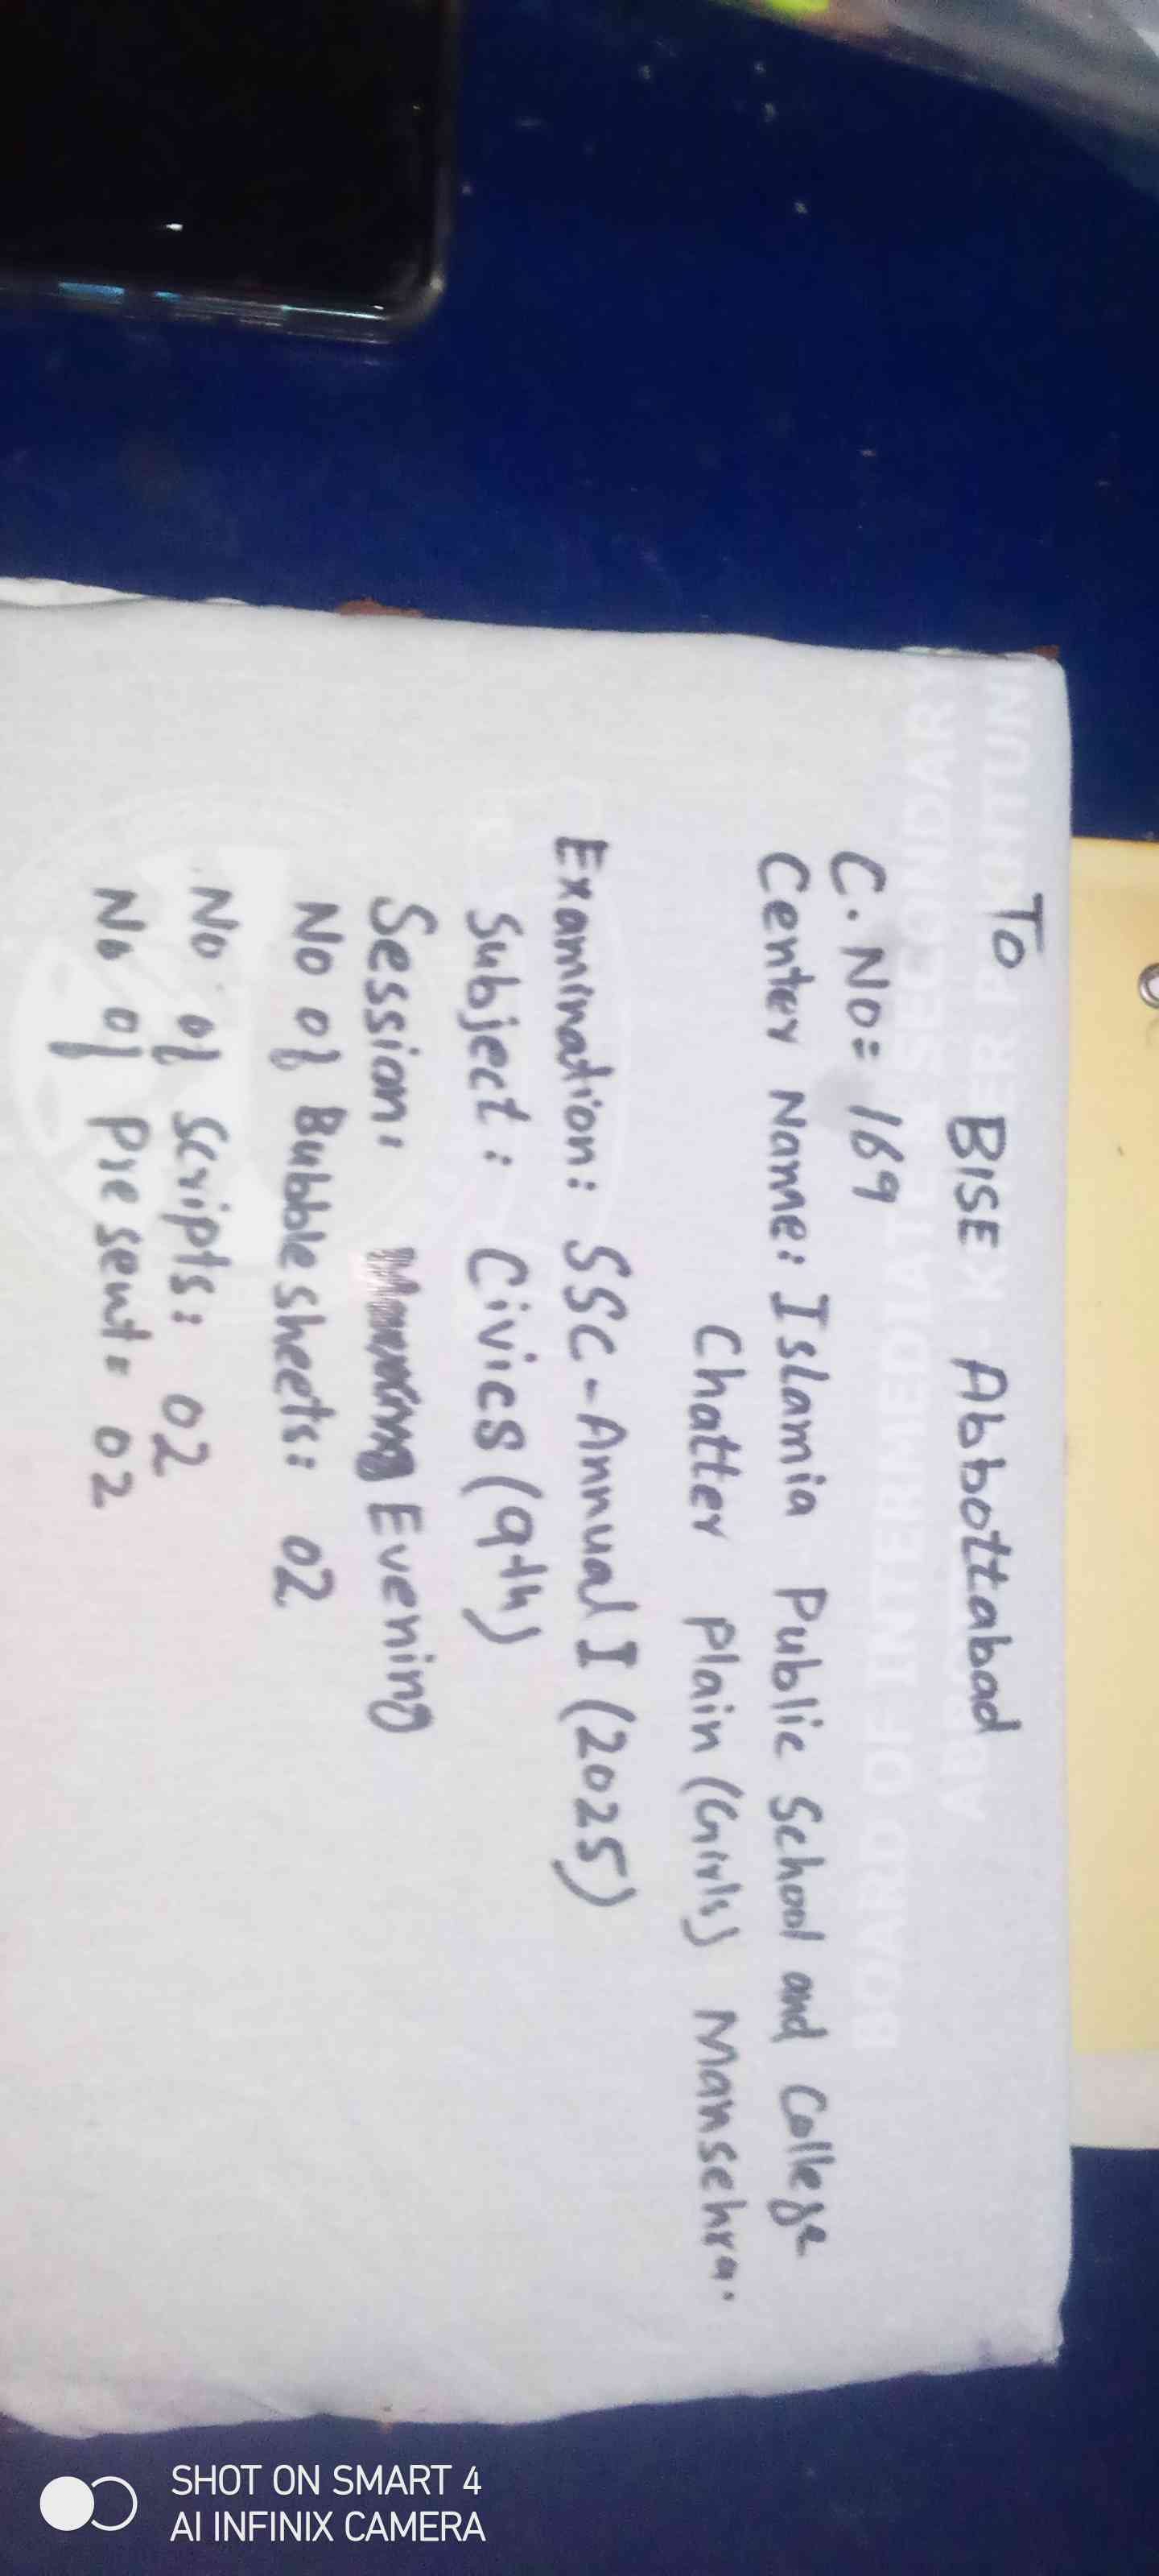 To BISE Abbottabad
C. No= 169
Center Name: Islamia Public School and College
Chatter Plain (Girls) Mansehra.
Examination: SSC-Annual I (2025)
Subject: Civics (9th)
Session: Evening
No of Bubble sheets: 02
No of Scripts: 02
No of Present= 02
BOARD OF INTERMEDIATE SECONDAR
SHOT ON SMART 4
AI INFINIX CAMERA